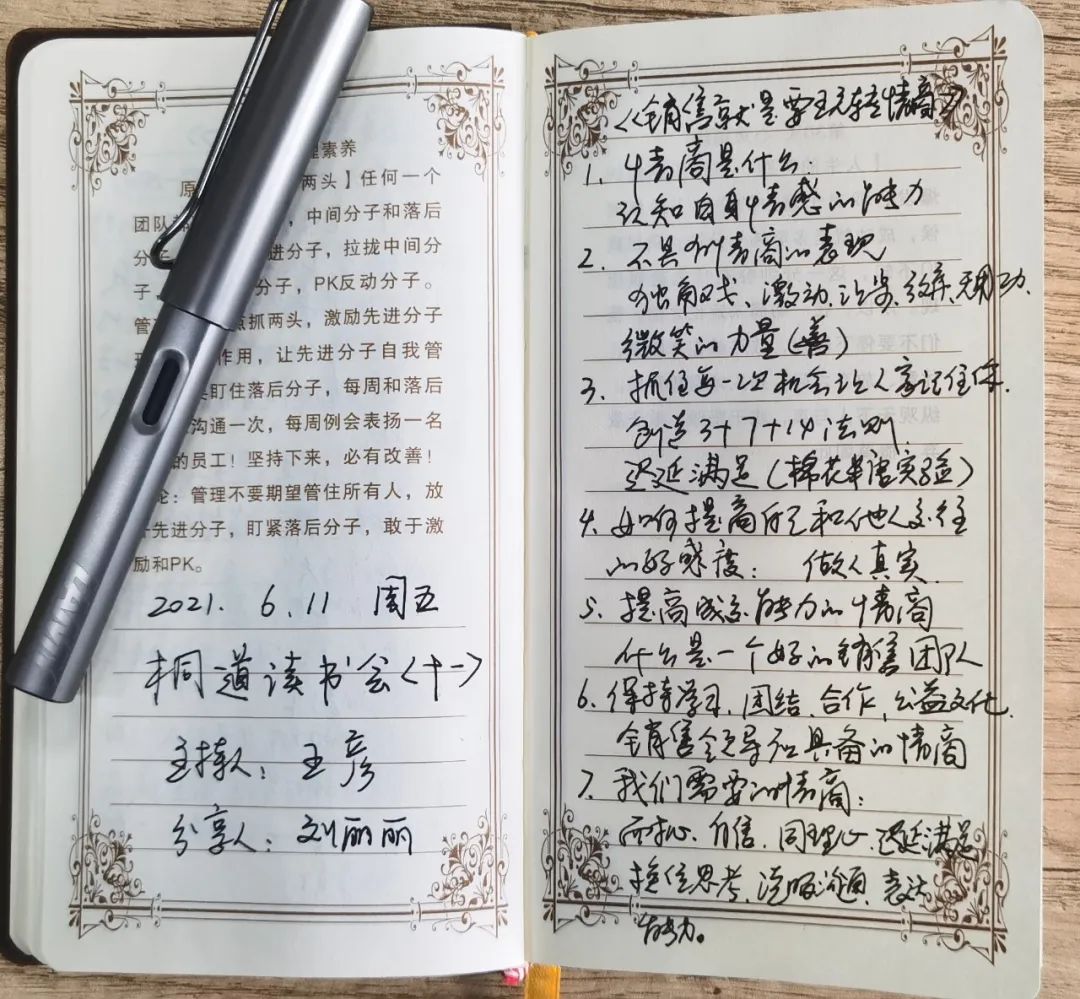 理素养
原 两头】任何一个
团队 ，中间分子和落后
分子 进分子，拉拢中间分
子， 分子，PK反动分子。
管 抓两头，激励先进分子
作用，让先进分子自我管
盯住落后分子，每周和落后
沟通一次，每周例会表扬一名
的员工！坚持下来，必有改善！
论：管理不要期望管住所有人，放
先进分子，盯紧落后分子，敢于激
励和PK。
2021. 6.11 周五
桐道读书会<十一>
主持人：王彦
分享人：刘丽丽
LAMY
《销售就是要玩转情商》
1. 情商是什么
认知自身情感的能力
2. 不具备情商的表现
独角戏、激动、让步、放弃、无用功.
微笑的力量(善)
3. 抓住每一次机会让人家记住你.
创造3+7+14法则.
迟延满足(棉花糖实验)
4. 如何提高自己和他人交往
的好感度： 做人真实.
5. 提高成交能力的情商
什么是一个好的销售团队
6. 保持学习, 团结, 合作, 公益文化.
销售领导应具备的情商
7. 我们需要的情商：
耐心. 自信. 同理心. 迟延满足
换位思考, 说服沟通, 表达
能力。